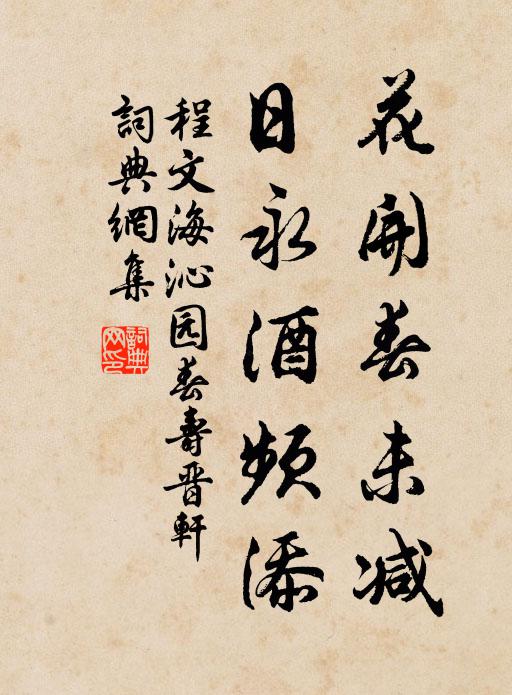 花開春未减
日永酒頻添
程文海沁园春壽晋軒
詞典網集
詞典
网印